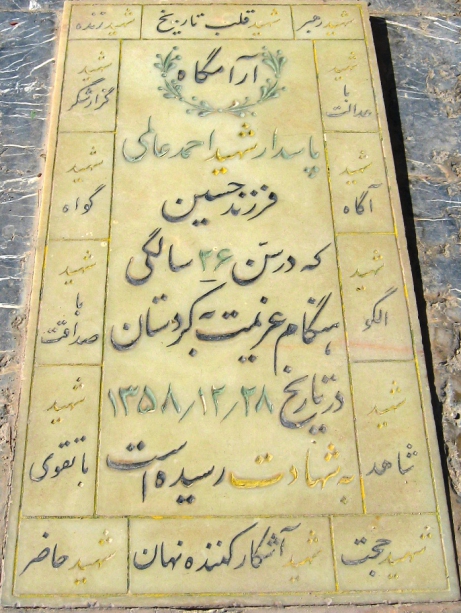 شهید رهبر
شهید قلب تاریخ
شهید زنده
شهید با عدالت
شهید آگاه
شهید الگو
شهید شاهد
آرامگاه
پاسدار شهید احمد عالمی
فرزند حسین
که در سن ۲۶ سالگی
هنگام عزیمت به کردستان
در تاریخ ۱۳۵۸/۱۲/۲۸
به شهادت رسیده است
شهید گزارشگر
شهید گواه
شهید با صداقت
شهید با تقوی
شهید حجت
شهید آشکار کننده نهان
شهید حاضر